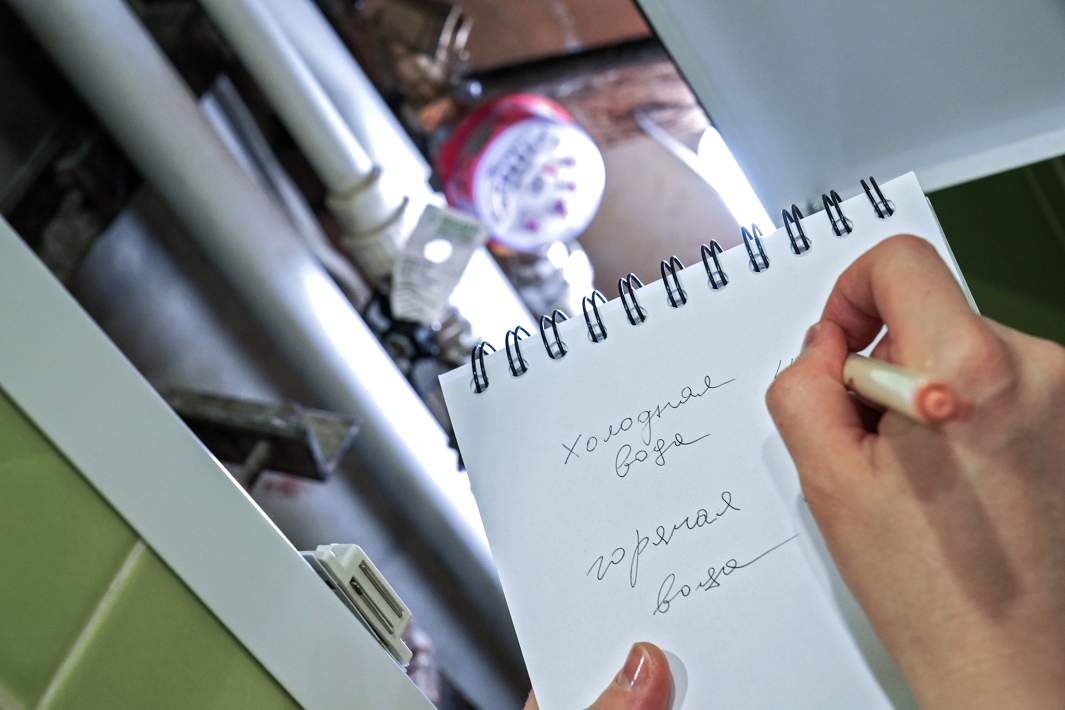 холодная
вода
горячая
вода